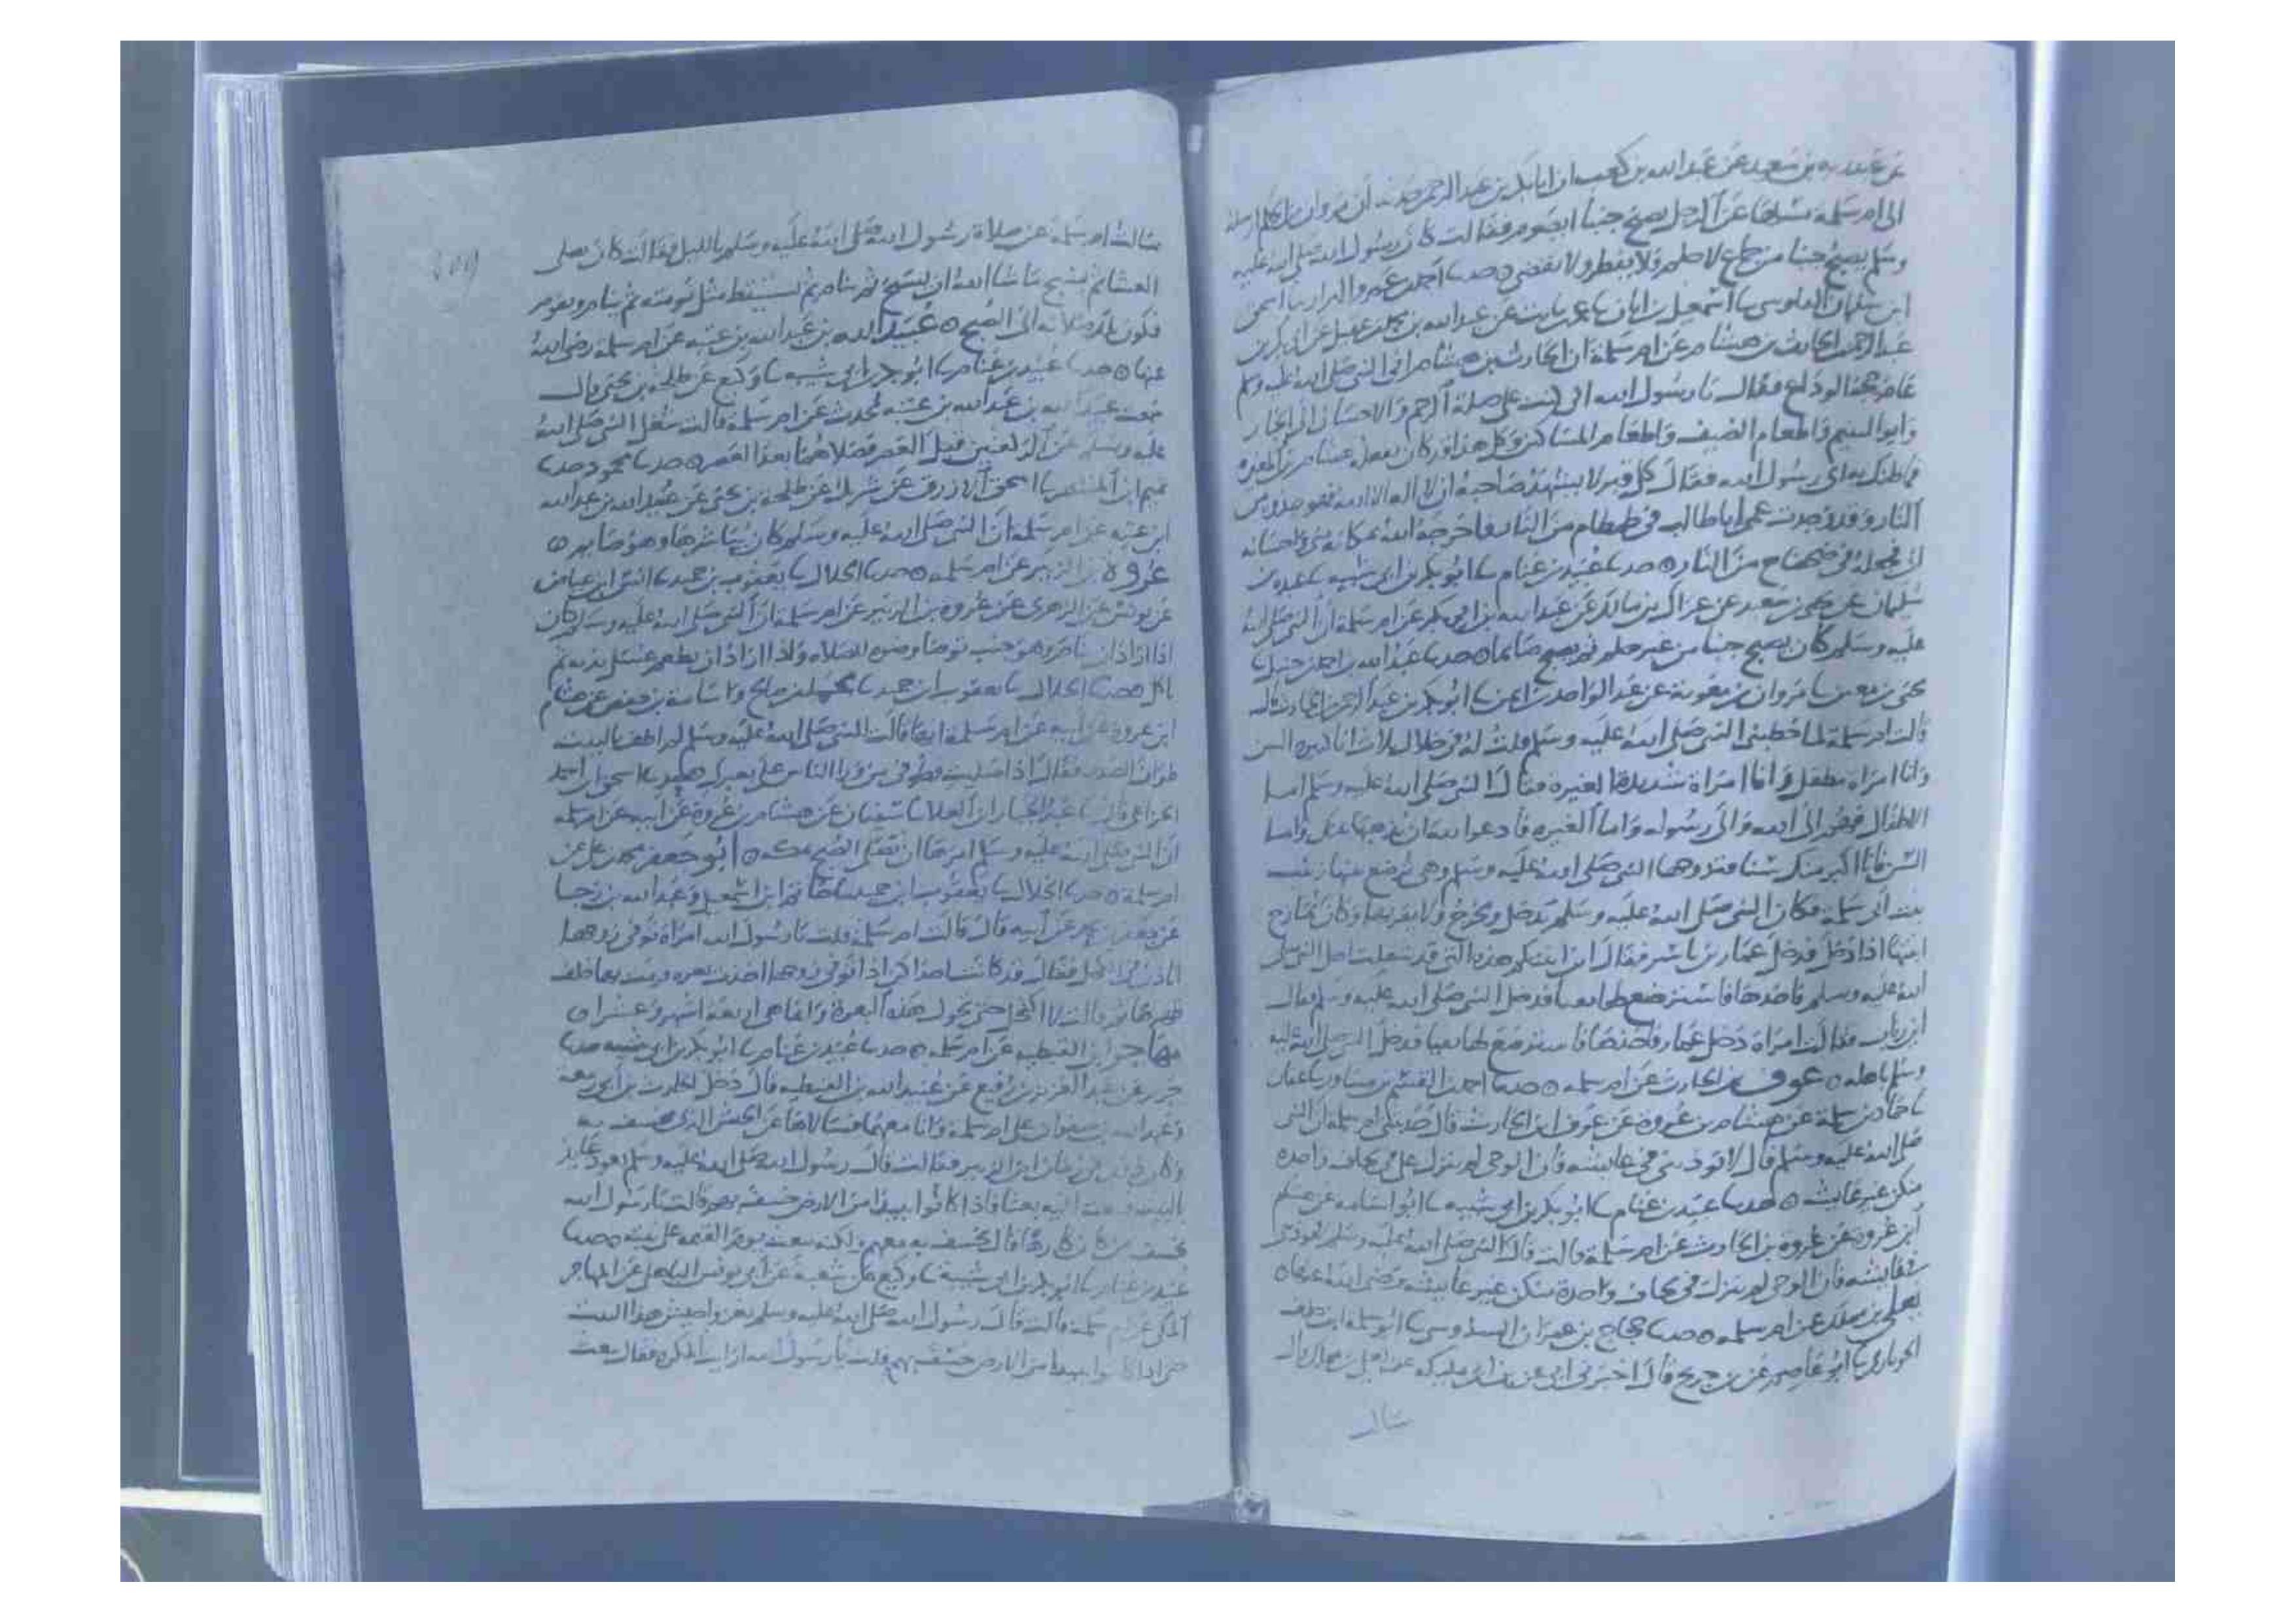 عن عبد ربه بن سعيد عن عبد الله بن كعب ان ابا بكر بن عبد الرحمن حدثه ان مروان بن الحكم ارسله
الى ام سلمة يسلها عن الرجل يصبح جنبا ايصوم فقالت كان رسول الله صلى الله عليه
وسلم يصبح جنبا من جماع لا حلم ولا يفطر ولا يقضي ه حدثنا احمد بن عمرو البزار نا اسحق
ابن سليمان نا اسمعيل بن ابان نا عن عبد الله بن محمد بن عقيل عن ابي بكر بن
عبد الرحمن بن الحارث بن هشام عن ام سلمة ان الحارث بن هشام اتى النبي صلى الله عليه وسلم
عام حجة الوداع فقال يا رسول الله اني على صلة الرحم والاحسان الى الجار
وايوا اليتيم واطعام الضيف واطعام المساكين وكل هذا قد كان يفعله هشام بن المغيرة
فما ظنك به اي رسول الله فقال كل قبر لا يشهد صاحبه ان لا اله الا الله فهو جذوة من
النار وقد وجدت عمي ابا طالب في طمطام من النار فاخرجه الله بمكانه مني واحسانه
الي فجعله في ضحضاح من النار ه حدثنا عبيد بن غنام نا ابو بكر بن ابي شيبة نا عبدة بن
سليمان عن يحيى بن سعيد عن عراك بن مالك عن عبد الله بن ابي بكر عن ام سلمة ان النبي صلى الله
عليه وسلم كان يصبح جنبا من غير حلم ثم يصبح صائما ه حدثنا عبد الله بن احمد بن حنبل نا
يحيى بن معين نا مروان بن معوية عن عبد الواحد بن ايمن نا ابو بكر بن عبد الرحمن بن الحارث قال
قالت ام سلمة لما خطبني النبي صلى الله عليه وسلم قلت له في خلال ثلاث انا كبيرة السن
وانا امراة مطفل وانا امراة شديدة الغيرة فقال النبي صلى الله عليه وسلم اما
الاطفال فهم الى الله والى رسوله واما الغيرة فادعوا الله ان يذهبها عنك واما
السن فانا اكبر منك سنا فتزوجها النبي صلى الله عليه وسلم وهي ترضع ابنتها زينب
بنت ابي سلمة فكان النبي صلى الله عليه وسلم يدخل ويخرج ولا يقربها وكان
ابنتها اذا دخل فدخل عمار بن ياسر فقال اين ابنتكم هذه التي قد شغلت اهل النبي صلى
الله عليه وسلم فاخذها فاسترضع لها فدخل النبي صلى الله عليه وسلم فقال
اين زناب فقالت امراة دخل عمار فاحتضنها فاسترضع لها فدخل النبي صلى الله عليه
وسلم باهله ه عوف بن الحارث عن ام سلمة ه حدثنا احمد بن القسم بن مساور نا عفان
نا حماد بن سلمة عن هشام بن عروة عن عوف ابن الحارث قال حدثتني ام سلمة ان النبي
صلى الله عليه وسلم قال لا توذيني في عايشة فان الوحي لم ينزل علي في لحاف واحدة
منكن غير عايشة ه حدثنا عبيد بن غنام نا ابو بكر بن ابي شيبة نا ابو اسامة عن هشام
ابن عروة عن عروة بن الحارث عن ام سلمة قالت قال النبي صلى الله عليه وسلم
في عايشة فان الوحي لم ينزل في لحاف واحدة منكن غير عايشة رضي الله عنها ه
يعلى بن مملك عن ام سلمة ه حدثنا حجاج بن عمران السدوسي نا ابو سلمة ابن خلف
الجوباري نا ابو عاصم عن بن جريج قال اخبرني ابي عن بن ابي مليكة عن يعلى بن مملك قال
سالت
سالت ام سلمة عن صلاة رسول الله صلى الله عليه وسلم بالليل فقالت كان يصلي
العشا ثم يسبح ما شا الله ان يسبح ثم ينام ثم يستيقظ مثل نومته ثم ينام ويقوم
فتكون تلك صلاته الى الصبح ه عبيد الله بن عبد الله بن عتبة عن ام سلمة رضي الله
عنها ه حدثنا عبيد بن غنام نا ابو بكر بن ابي شيبة نا وكيع عن طلحة بن يحيى قال
سمعت عبيد الله بن عبد الله بن عتبة يحدث عن ام سلمة قالت شغل النبي صلى الله
عليه وسلم عن الركعتين قبل العصر فصلاهما بعد العصر ه حدثنا محمود حدثنا
تميم ابن المنتصر نا اسحق الازرق عن شريك عن طلحة بن يحيى عن عبيد الله بن عبد الله
ابن عتبة عن ام سلمة ان النبي صلى الله عليه وسلم كان يباشرها وهو صايم ه
عروة بن الزبير عن ام سلمة ه حدثنا الخلال نا يعقوب بن حميد نا انس ابن عياض
عن يونس عن الزهري عن عروة بن الزبير عن ام سلمة ان النبي صلى الله عليه وسلم كان
اذا اراد ان ينام وهو جنب توضا وضوه للصلاه واذا اراد ان يطعم غسل يديه ثم
اكل ه حدثنا الخلال نا يعقوب ابن حميد نا واسامة بن حفص عن هشام
ابن عروة عن ابيه عن ام سلمة انها قالت للنبي صلى الله عليه وسلم لم اطف بالبيت
طواف الصدر فقال اذا صليت فطوفي من ورا الناس على بعيرك ه حدثنا اسحق بن احمد
الخزاعي قال نا عبد الجبار ابن العلا نا سفيان عن هشام بن عروة عن ابيه عن ام سلمة
ان النبي صلى الله عليه وسلم امرها ان تصلي الصبح بمكة ه ابو جعفر محمد بن علي عن
ام سلمة ه حدثنا الخلال نا يعقوب ابن حميد نا حاتم ابن اسمعيل وعبد الله بن رجا
عن جعفر بن محمد عن ابيه قال قالت ام سلمة قلت يا رسول الله امراة توفي زوجها
فقال قد كانت احداكن اذا توفي زوجها اخذت بعرة فرمت بها خلف
ظهرها ثم قالت لا اكتحل حتى تحول هذه البعرة وانما هي اربعة اشهر وعشرا ه
مهاجر ابن القبطية عن ام سلمة ه حدثنا عبيد بن غنام نا ابو بكر بن ابي شيبة حدثنا
جرير عن عبد العزيز بن رفيع عن عبيد الله بن القبطية قال دخل الحارث بن ابي ربيعة
وعبد الله بن صفوان على ام سلمة وانا معهما فسالاها عن الجيش الذي يخسف به
وكان ذلك في زمان ابن الزبير فقالت قال رسول الله صلى الله عليه وسلم يعوذ عايذ
بالبيت فيبعث اليه بعثا فاذا كانوا ببيدا من الارض خسف بهم قالت يا رسول الله
كارها قال يخسف به معهم ولكنه يبعث يوم القيمة على نيته ه حدثنا
عبيد بن غنام نا ابو بكر بن ابي شيبة نا وكيع عن شعبة عن ابي يونس الباهلي عن المهاجر
المكي عن ام سلمة قالت قال رسول الله صلى الله عليه وسلم يغزوا جيش هذا البيت
حتى اذا كانوا ببيدا من الارض خسف بهم قلت يا رسول الله ارايت المكره فقال يبعث